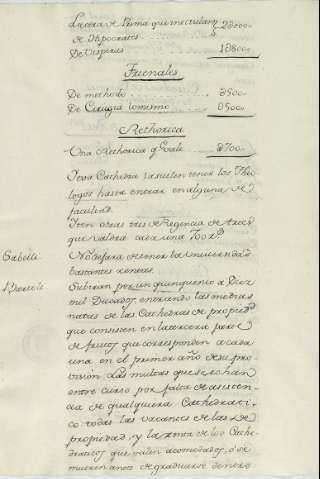 La otra de Prima que
de Hypocrates 2000
De Visperas 1800
Trienales
De methodo 500
De Cirugia lo mismo 0500
Rethorica
Una Rethorica q Vale 700
Esta Cathedra la suelen tener los Theo
logos hasta entrar en alguna de
facultad.
Iten otras tres de Regencia de Artes
que valdra cada una 700
No dejara de tener la Universidad
bastantes rentas.
Subiran por un quinquenio a Diez
mil Ducados, entrando las medias
natas de las Cathedras de propied.
que consisten en la tercera parte
de frutos que corresponden a cada
una en el primer año de su pro
vision. Las multas que se echan
entre curso por falta de asisten
cia de qualquiera Cathedrati
co todas las vacantes de las de
propiedad, y la renta de los Cathe
draticos que salen acomodados, o se
mueren antes de graduarse dentro